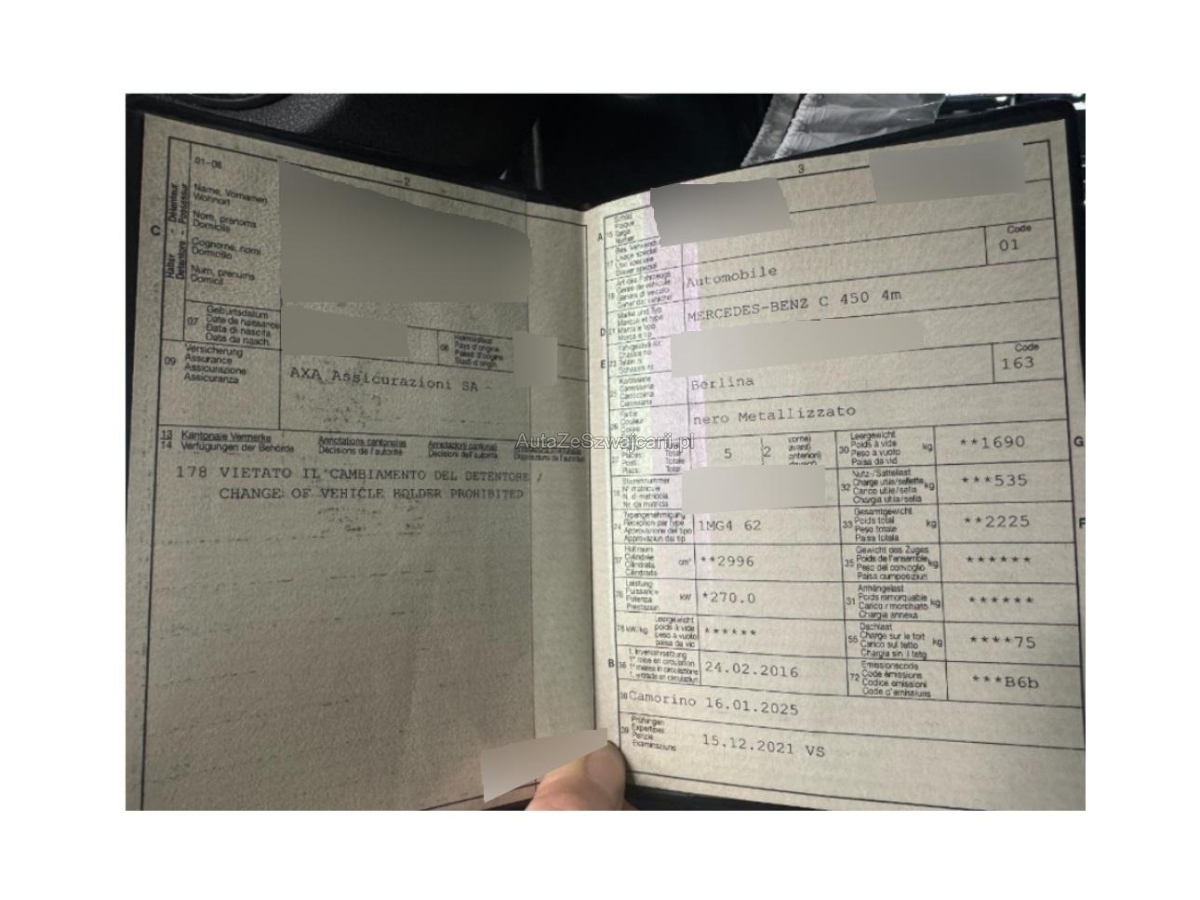 2
01-06
C
Halter - Détenteur
Detentore - Possessur
Name, Vornamen
Wohnort
Nom, prénoms
Domicile
Cognome, nomi
Domicilio
Num, prenums
Domicil
07
Geburtsdatum
Date de naissance
Data di nascita
Data da nasch.
08
Heimatstaat
Pays d'origine
09
Versicherung
Assurance
Assicurazione
Assicuranza
AXA Assicurazioni SA -
13
14
Kantonale Vermerke
Verfügungen der Behörde
Annotations cantonales
Décisions de l'autorité
Annotazioni cantonali
Decisioni dell'autorità
178 VIETATO IL CAMBIAMENTO DEL DETENTORE /
CHANGE OF VEHICLE HOLDER PROHIBITED
3
A
15
Schild
Plaque
Targa
Code
01
Automobile
D
MERCEDES-BENZ C 450 4m
E
Code
163
Berlina
nero Metallizzato
Places: Total
Posti: Totale
5
2
30
Leergewicht
Poids à vide
Peso a vuoto
Paisa da vid
kg
**1690
G
32
Nutz-/Sattellast
Charge utile/sellette
Carico utile/sella
Chargia utila/sella
kg
***535
24
Typengenehmigung
Réception par type
Approvazione del tipo
Approvaziun dal tip
1MG4 62
33
Gesamtgewicht
Poids total
Peso totale
Paisa totala
kg
**2225
F
37
Hubraum
Cylindrée
Cilindrata
cm³
**2996
35
Gewicht des Zuges
Poids de l'ensemble
Peso del convoglio
Paisa cumposiziun
kg
******
76
Leistung
Puissance
Potenza
Prestaziun
kW
*270.0
31
Anhängelast
Poids remorquable
Carico rimorchiato
Chargia annexa
kg
******
78 kW/kg
Leergewicht
poids à vide
peso a vuoto
paisa da vid
******
55
Dachlast
Charge sur le toit
Carico sul tetto
Chargia sin il tetg
kg
****75
B
36
1. Inverkehrsetzung
1re mise en circulation
1a messa in circolazione
24.02.2016
72
Emissionscode
Code émissions
Codice emissioni
Code d'emissiuns
***B6b
38
Camorino 16.01.2025
39
Prüfungen
Expertises
Perizie
Examinaziuns
15.12.2021 VS
AutaZeSzwajcarii.pl